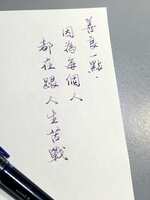 善良一點.
因為每個人
都在跟人生苦戰